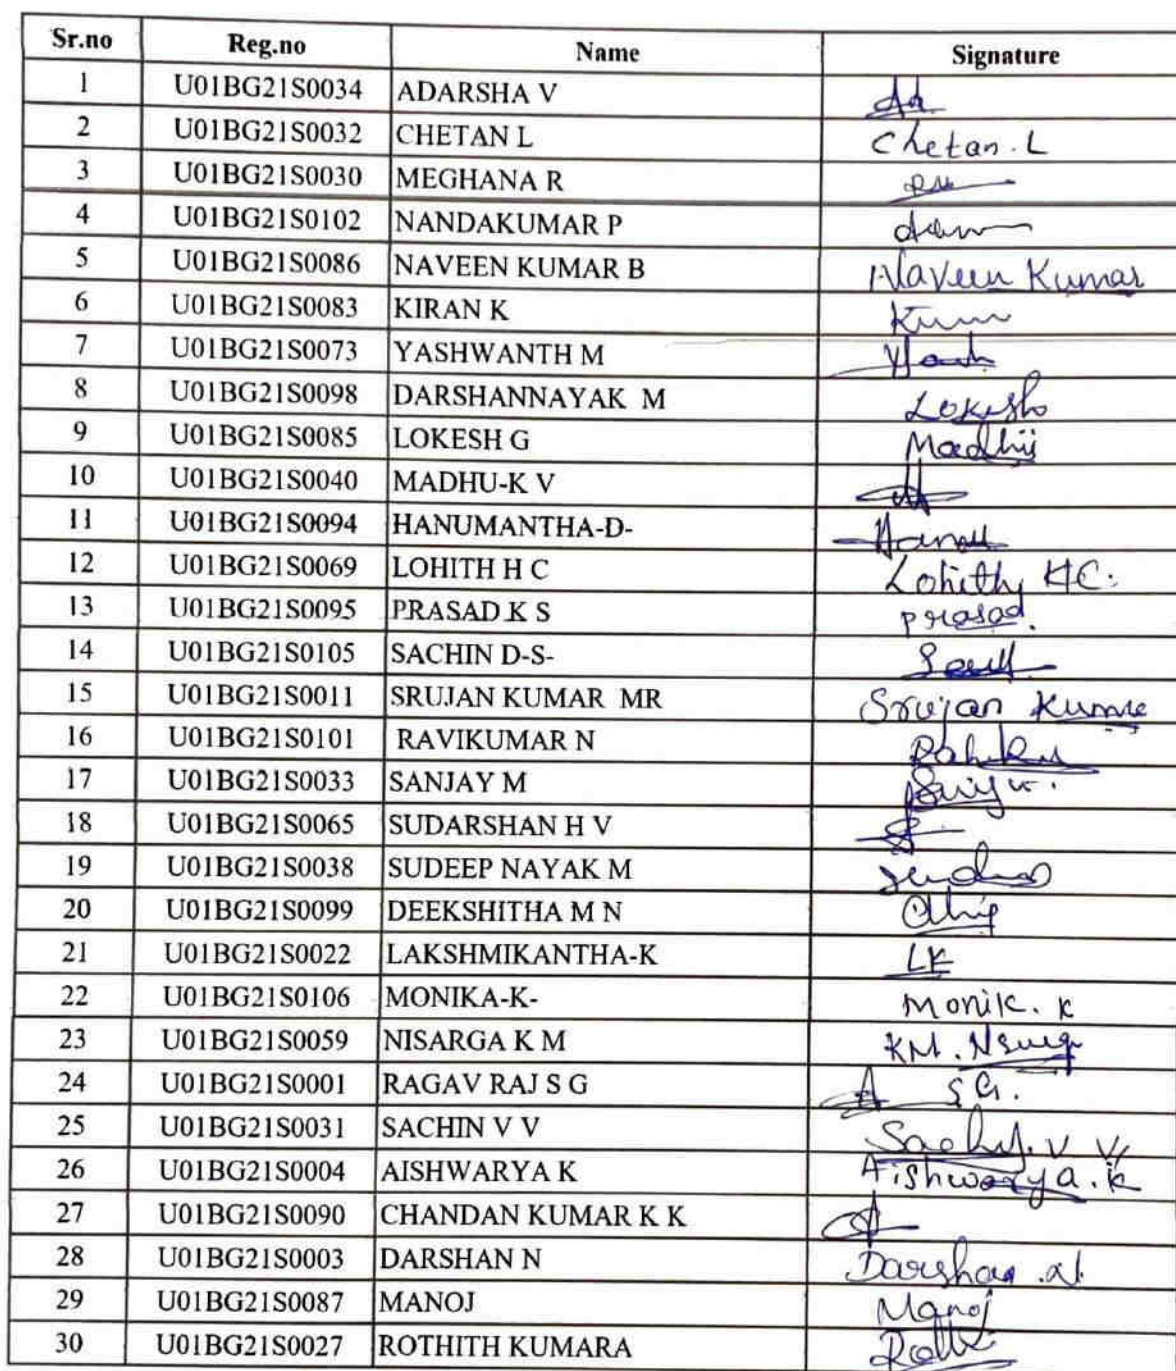 Sr.no Reg.no Name Signature
1 U01BG21S0034 ADARSHA V
2 U01BG21S0032 CHETAN L Chetan.L
3 U01BG21S0030 MEGHANA R
4 U01BG21S0102 NANDAKUMAR P
5 U01BG21S0086 NAVEEN KUMAR B Naveen Kumar
6 U01BG21S0083 KIRAN K
7 U01BG21S0073 YASHWANTH M
8 U01BG21S0098 DARSHANNAYAK M Lokesh
9 U01BG21S0085 LOKESH G
10 U01BG21S0040 MADHU-K V
11 U01BG21S0094 HANUMANTHA-D-
12 U01BG21S0069 LOHITH H C Lohith HC.
13 U01BG21S0095 PRASAD K S prasad.
14 U01BG21S0105 SACHIN D-S-
15 U01BG21S0011 SRUJAN KUMAR MR Srujan
16 U01BG21S0101 RAVIKUMAR N
17 U01BG21S0033 SANJAY M
18 U01BG21S0065 SUDARSHAN H V
19 U01BG21S0038 SUDEEP NAYAK M
20 U01BG21S0099 DEEKSHITHA M N
21 U01BG21S0022 LAKSHMIKANTHA-K LK
22 U01BG21S0106 MONIKA-K- Monik. K
23 U01BG21S0059 NISARGA K M KM.
24 U01BG21S0001 RAGAV RAJ S G SG.
25 U01BG21S0031 SACHIN V V V V
26 U01BG21S0004 AISHWARYA K Aishwarya.K
27 U01BG21S0090 CHANDAN KUMAR K K
28 U01BG21S0003 DARSHAN N Darshan .N.
29 U01BG21S0087 MANOJ Manoj
30 U01BG21S0027 ROTHITH KUMARA